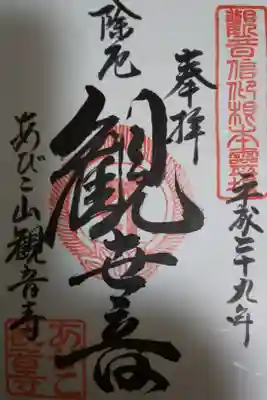 觀音信仰根本霊場
奉拝
平成二十九年
除厄
観世音
あびこ山観音寺
あびこ
観音寺